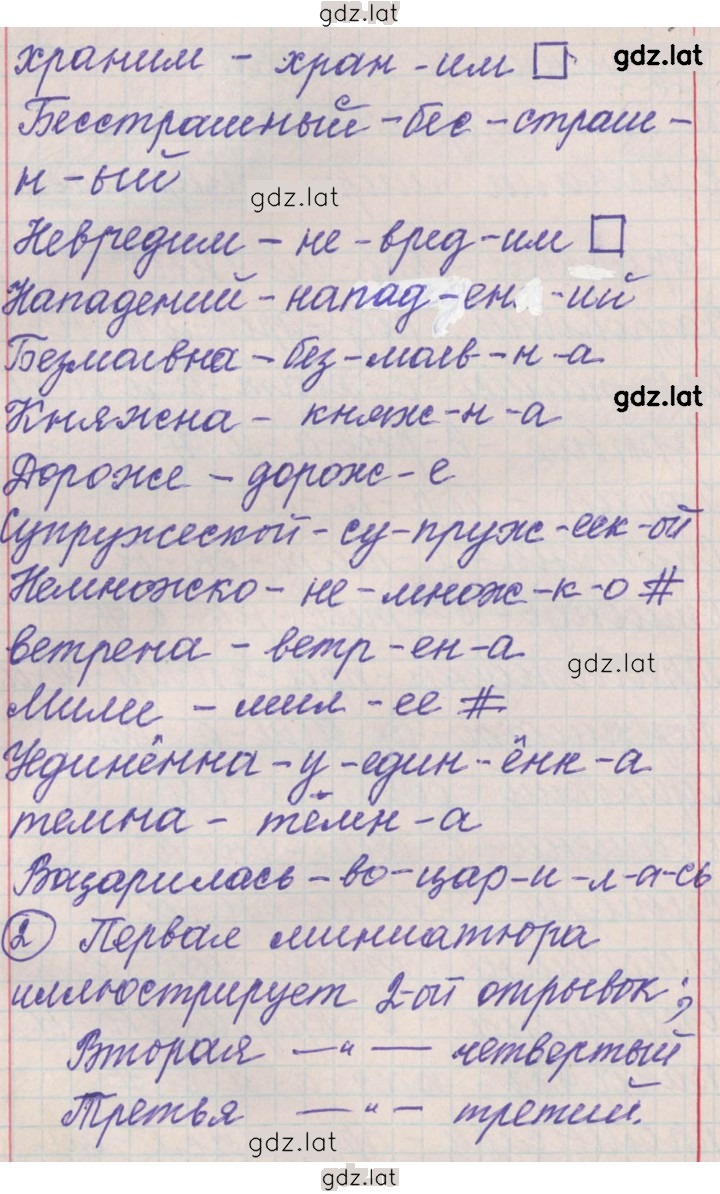 gdz.lat
храним - хран - им □ gdz.lat
Бесстрашный - бес - страш -
н - ый
gdz.lat
Невредим - не - вред - им □
Нападений - напад - ен - ий
Безмолвна - без - молв - н - а
gdz.lat
Княжна - княж - н - а
Дороже - дорож - е
Супружеской - су - пруж - еск - ой
Немножко - не - множ - к - о #
ветрена - ветр - ен - а
gdz.lat
Милее - мил - ее #
Уединённа - у - един - ённ - а
темна - тёмн - а
Вацарилась - во - цар - и - л - а - сь
2 Первая миниатюра
иллюстрирует 2-ой отрывок;
Вторая — " — четвертый
Третья — " — третий.
gdz.lat
gdz.lat